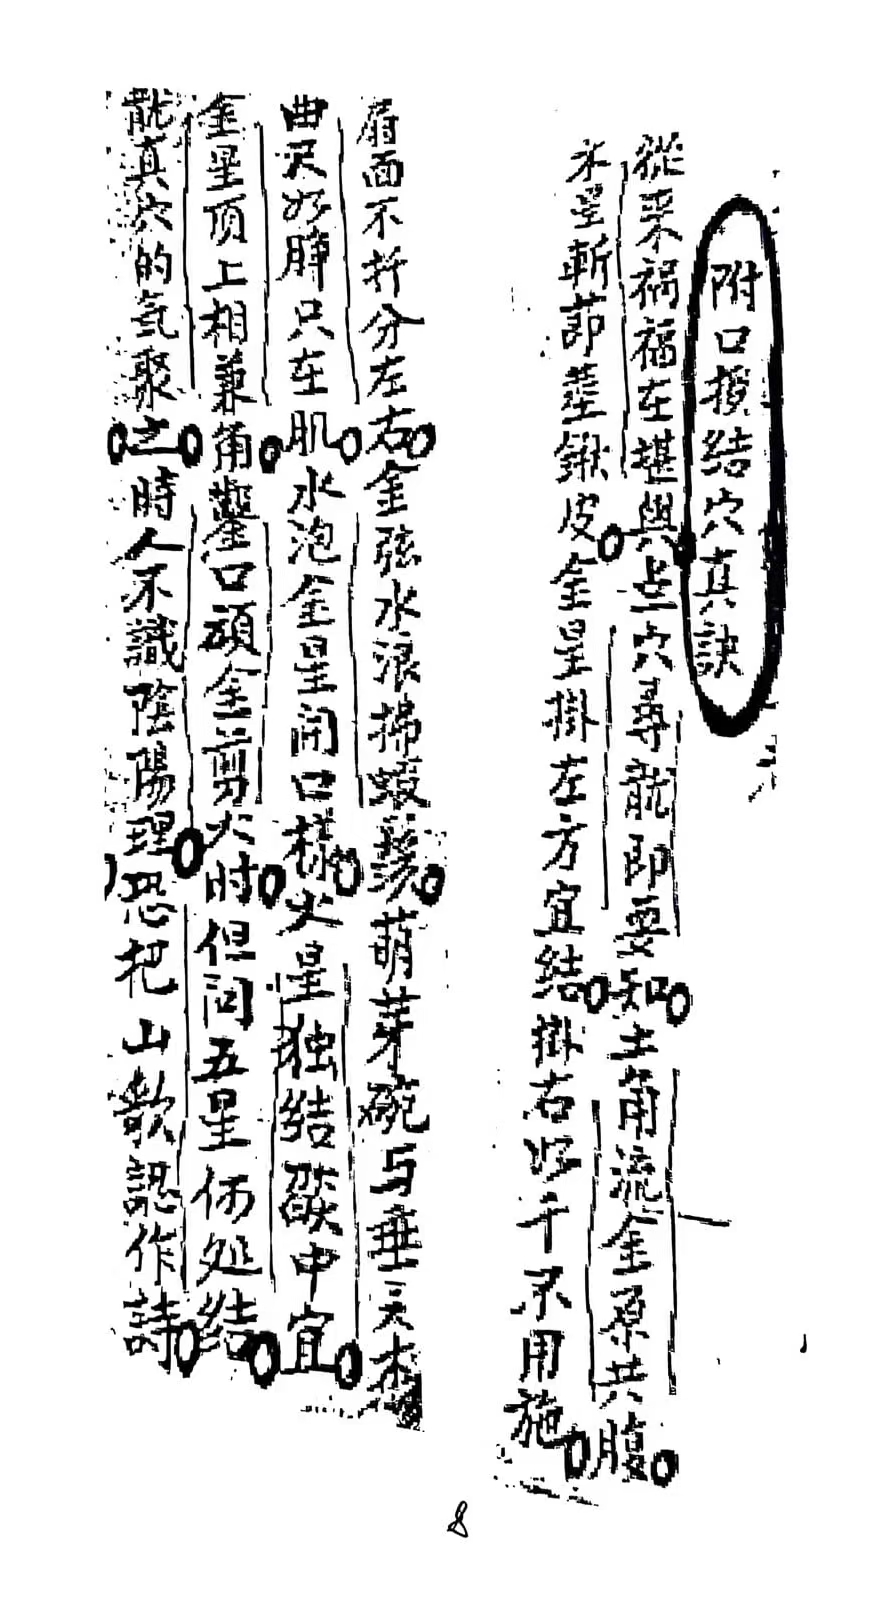 附口授结穴真訣
從来禍福在堪與点穴尋龍即要知土角流金原共腹
木星斬節莖鍬皮金星掛左方宜结掛右如千不用施
眉面不拆分左右金弦水浪棉蝦鬚萌芽碗与垂
曲沢如脾只在肌水泡金星開口樣火星独结焰中宜
金星頂上相兼角鑿口額金剪火时但问五星何处结
龍真穴的氣聚之時人不識陰陽理恐把山歌認作詩
8